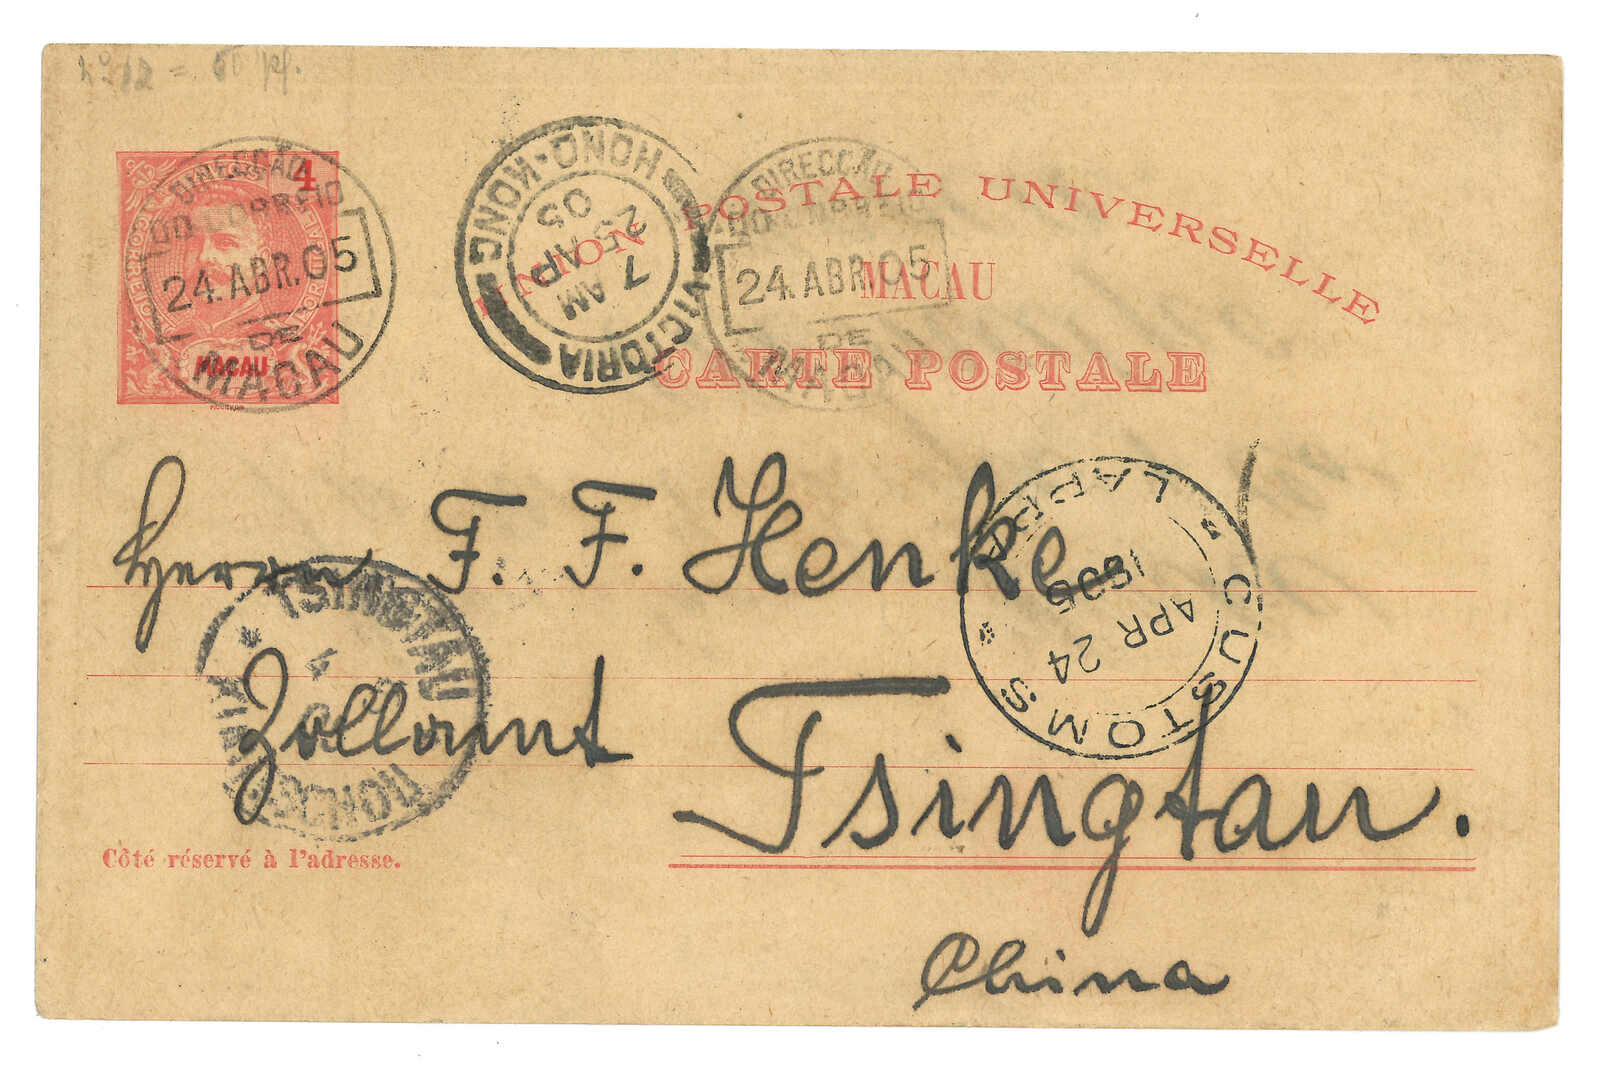 4
CORREIO
MACAU
DIRECÇÃO
DO CORREIO
24.ABR.05
DE
MACAU
VICTORIA
HONG-KONG
7 AM
25 AP
05
DIRECÇÃO
DO CORREIO
24.ABR.05
DE
MACAU
UNION POSTALE UNIVERSELLE
MACAU
CARTE POSTALE
Herrn F. F. Henke
CUSTOMS
LAPPA
APR 24
1905
TSINGTAU
Zollamt Tsingtau.
Côté réservé à l'adresse.
China